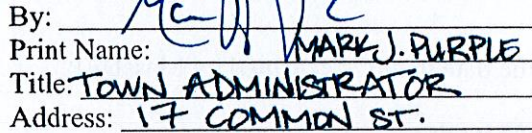 By:
Print Name: MARK J. PURPLE
Title: TOWN ADMINISTRATOR
Address: 17 COMMON ST.